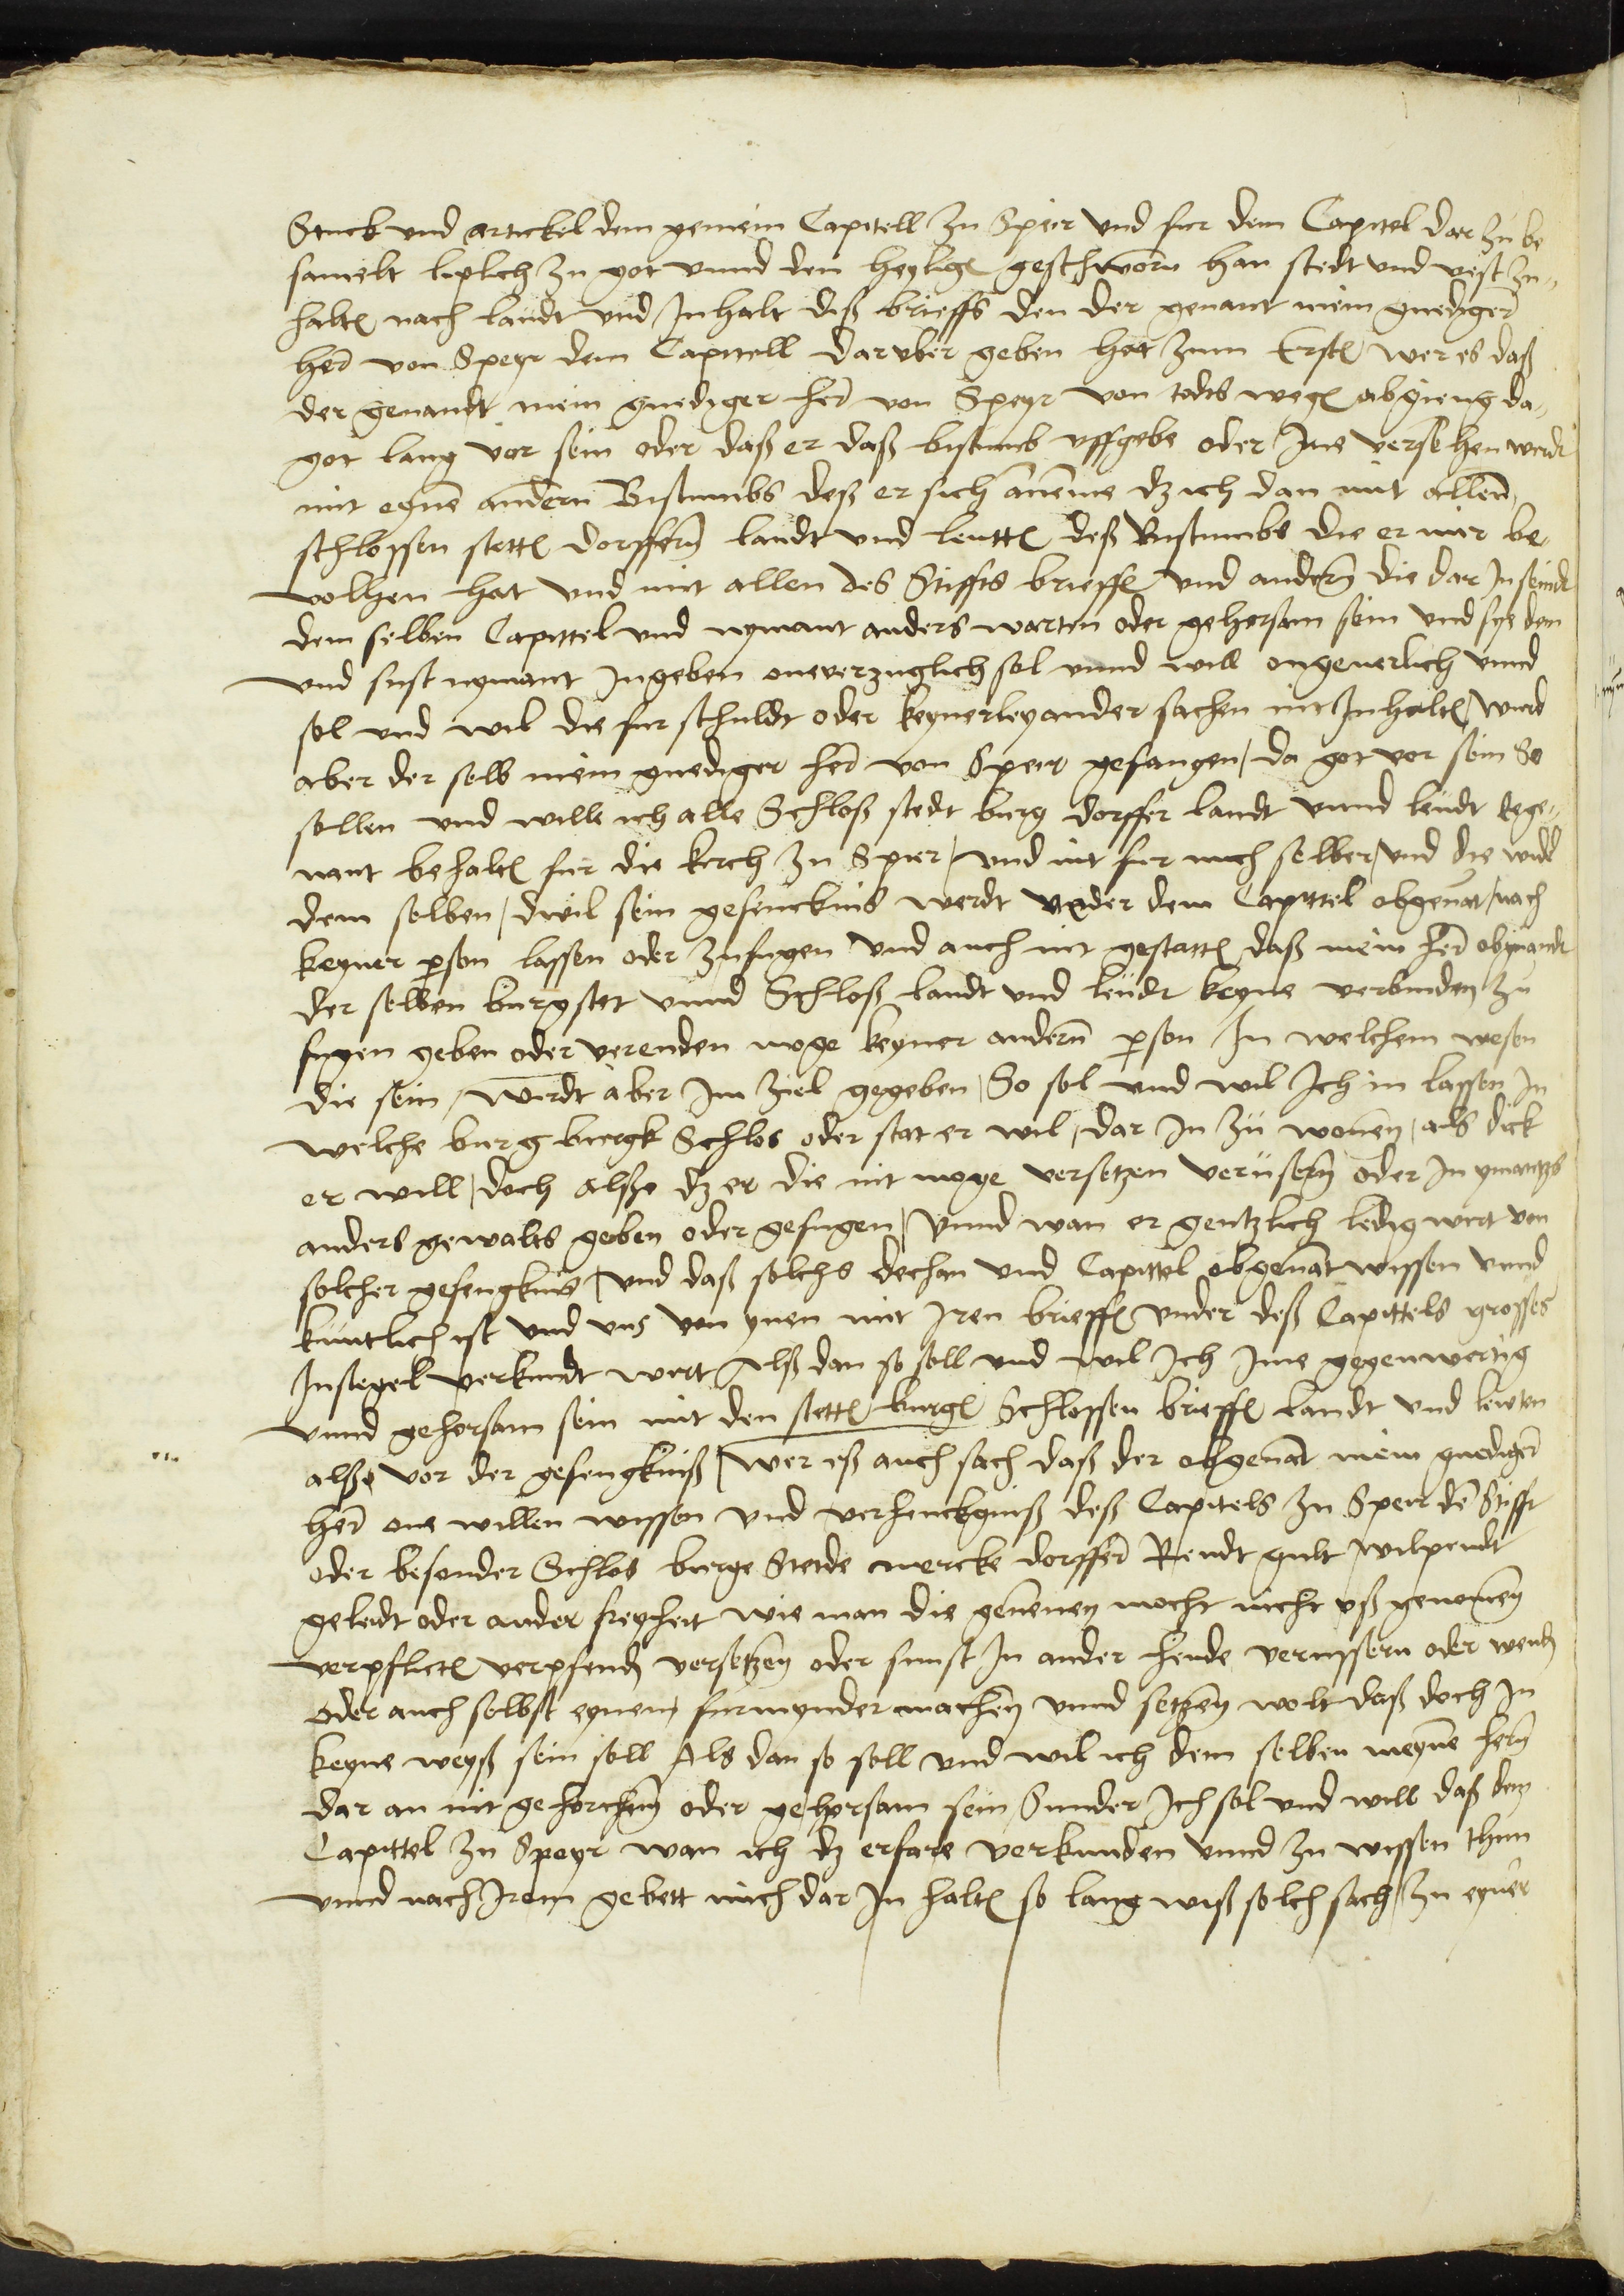 Stuck vnd artickel dem gemein Capitell zu Speir vnd fur dem Capitel dar zu be
samelt liplich zu got vnnd den heylige͂ geschworn han stedt vnd vest zu„
halte͂ nach laudt vnd Inhalt diß brieffs den der genant mein gnediger͂
her͂ von Speyr dem Capittell darvber geben hot zum Erste͂ wer es daß
der genandt mein gnediger her͂ von Speyr von todts wege͂ abgieng da„
got lang vor sein oder daß er daß bistumb vffgebe oder Ime versehen werdt
mit eyne͂ andern Bistumbs deß er sich aneme dz ich dan mit allen
schlossen stette͂ dorffern͂ landt vnd leutte͂ deß Bistumbs die er mir be„
volhen hat vnd mit allen des Stiffts brieffe͂ vnd andern͂ die dar In seindt
dem selben Capittel vnd nymant anders warten oder gehorsam sein vnd sye dem
vnd sust nymant Ingeben onverzuglich sol vnnd will ongeuerlich vnnd
sol vnd wil die fur schuldt oder keynerley ander sachen nit Inhalte͂ / wurd
aber der selb mein gnediger her͂ von Speir gefangen / da got vor sein So
sollen vnd wille ich alle Schloß stedt burg dorffer landt vnnd leudt ege„
nant behalte͂ fur die kirch zu Speir / vnd nit fur mich selber / vnd die wil
dem selben / dwil sein gefenckniß werdt vnder dem Capittel obgenant / nach
keyner p͂son lassen oder zufugen vnd auch nit gestatte͂ daß mein her͂ obgnandt
der selben burg stet vnnd Schloß landt vnd leudt keyne verbinden zu
fugen geben oder verenden moge keyner andern͂ p͂son In welchem wesen
die sein / wirdt aber Im ziel gegeben / So sol vnd wil Ich in lassen In
welche burg burgk Schlos oder stat er wil / dar In zu wonen͂ / als dick
er will / doch alßo dz er die nit moge versetzen verüsern͂ oder In ymantzs
anders gewalts geben oder gefugen / Vnnd wan er gentzlich ledig wirt von
solcher gefengkniß / vnd daß solchs dechan vnd Capittel obgenant wissen vnnd
kuntlich ist vnd vns von ynen mit Iren brieffe͂ vnder deß Capittels grosses
Insiegel verkundt wirt Alß dan so soll vnd wil Ich Ime gegenwertig
vnnd gehorsam sein mit den stette͂ burge͂ Schlossen brieffe͂ landt vnd lewten
alßo vor der gefengkniß / Wer eß auch sach daß der obgenant mein gnediger͂
her͂ one willen wissen vnd verhenckgniß deß Capitels zu Speir de͂ Stifft
oder besonder Schlos burge Stetde mercke dorffer͂ Rendt gult wilpendt
geleidt oder ander freyheit wie man die genenen mocht nicht vß genomen͂
verpflicte͂ verpfend͂ versetzen͂ oder sunst In ander hende verussern oder wend͂
oder auch selbst eynen furmynder machen͂ vnnd setzen͂ wolt daß doch In
keyne weyß sein soll Als dan so soll vnd wil ich dem selben meyne͂ hern͂
dar an nit gehorchen͂ oder gehorsam sein Sunder Ich sol vnd will daß dem
Capittel zu Speyr wan ich dz erfare verkunden vnnd zu wissen thun
vnnd nach Irem gebett mich dar In halte͂ so lang wiß solch sach / zu eyner